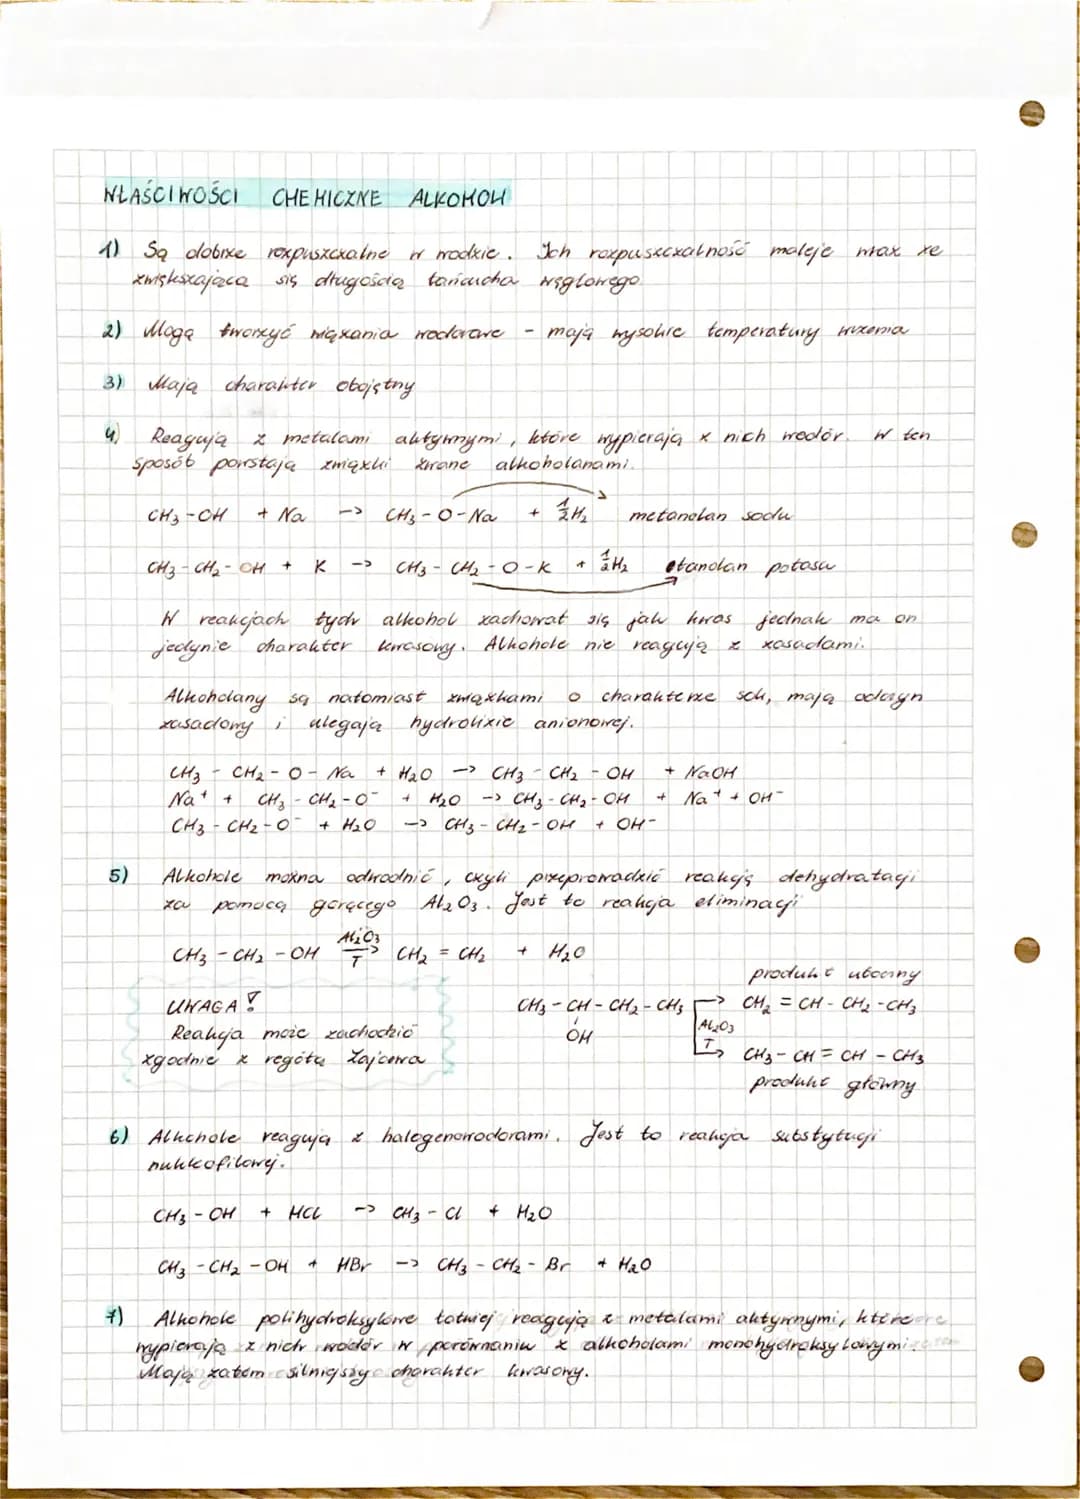 WŁAŚCIWOŚCI CHEMICZNE ALKOHOLI
1) Są dobrze rozpuszczalne w wodzie. Ich rozpuszczalność maleje wraz ze
zwiększającą się długością łańcucha węglowego
2) Mogą tworzyć wiązania wodorowe - mają wysokie temperatury wrzenia
3) Mają charakter obojętny
4) Reagują z metalami aktywnymi, które wypierają z nich wodór. W ten
sposób powstają związki zwane alkoholanami.
CH₃-OH + Na -> CH₃-O-Na + ½H₂ metanolan sodu
CH₃-CH₂-OH + K -> CH₃-CH₂-O-K + ½H₂ etanolan potasu
W reakcjach tych alkohol zachował się jak kwas jednak ma on
jedynie charakter kwasowy. Alkohole nie reagują z zasadami.
Alkoholany są natomiast związkami o charakterze soli, mają odczyn
zasadowy i ulegają hydrolizie anionowej.
CH₃-CH₂-O-Na + H₂O -> CH₃-CH₂-OH + NaOH
Na⁺ + CH₃-CH₂-O⁻ + H₂O -> CH₃-CH₂-OH + Na⁺ + OH⁻
CH₃-CH₂-O⁻ + H₂O -> CH₃-CH₂-OH + OH⁻
5) Alkohole można odwodnić, czyli przeprowadzić reakcję dehydratacji
za pomocą gorącego Al₂O₃. Jest to reakcja eliminacji
Al₂O₃
CH₃-CH₂-OH -> CH₂=CH₂ + H₂O
T
UWAGA!
Reakcja może zachodzić
zgodnie z regułą Zajcewa
produkt uboczny
CH₃-CH-CH₂-CH₃ -> CH₂=CH-CH₂-CH₃
OH
Al₂O₃
T
-> CH₃-CH=CH-CH₃
produkt główny
6) Alkohole reagują z halogenowodorami. Jest to reakcja substytucji
nukleofilowej.
CH₃-OH + HCl -> CH₃-Cl + H₂O
CH₃-CH₂-OH + HBr -> CH₃-CH₂-Br + H₂O
7) Alkohole polihydroksylowe łatwiej reagują z metalami aktywnymi, które
wypierają z nich wodór w porównaniu z alkoholami monohydroksylowymi.
Mają zatem silniejszy charakter kwasowy.